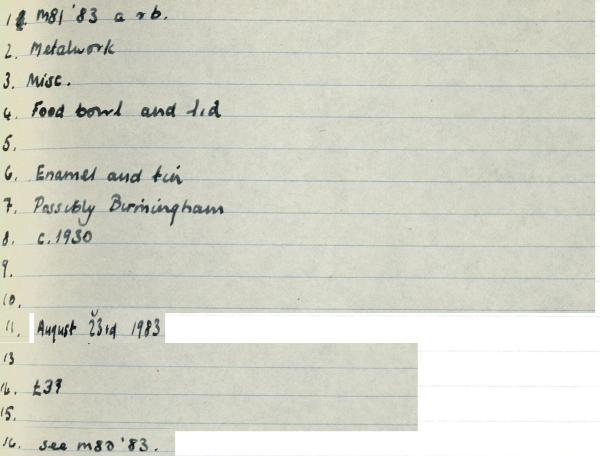 1. M81 '83 a + b.
2. Metalwork
3. Misc.
4. Food bowl and lid
5.
6. Enamel and tin
7. Possibly Birmingham
8. c.1930
9.
10.
11. August 23rd 1983
13
14. £39
15.
16. see m80 '83.